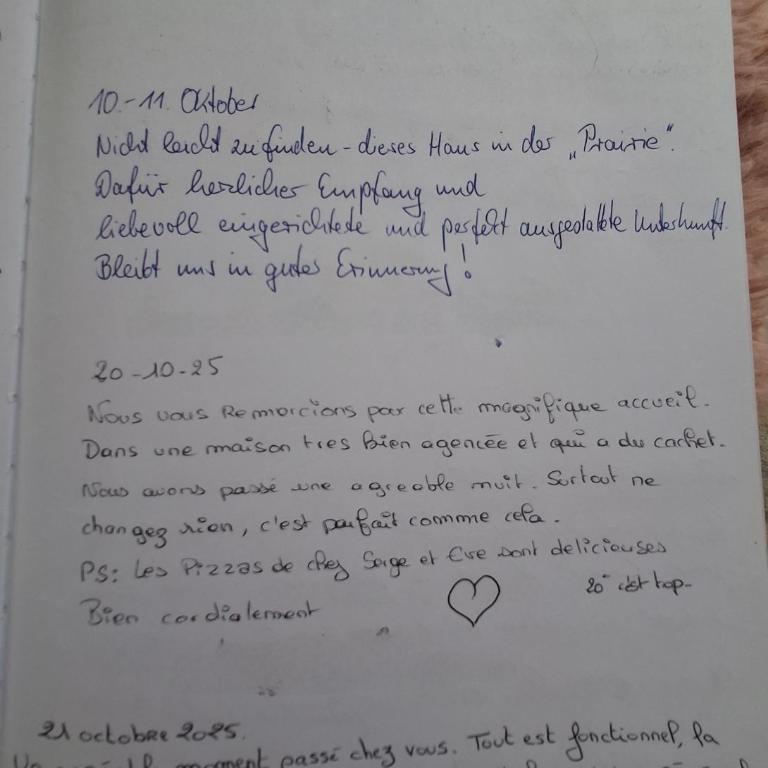 10.-11. Oktober
Nicht leicht zu finden - dieses Haus in der „Prairie“.
Dafür herzlicher Empfang und
liebevoll eingerichtete und perfekt ausgestattete Unterkunft.
Bleibt uns in guter Erinnerung!
20-10-25
Nous vous Remercions par cette magnifique accueil.
Dans une maison tres Bien agencée et qui a du cachet.
Nous avons passé une agreable nuit. Surtout ne
changez rien, c'est parfait comme cela.
PS: Les Pizzas de chez Serge et Eve sont deliciouses
20 c'est top-
Bien cordialement
21 octobre 2025.
moment passé chez vous. Tout est fonctionnel, la